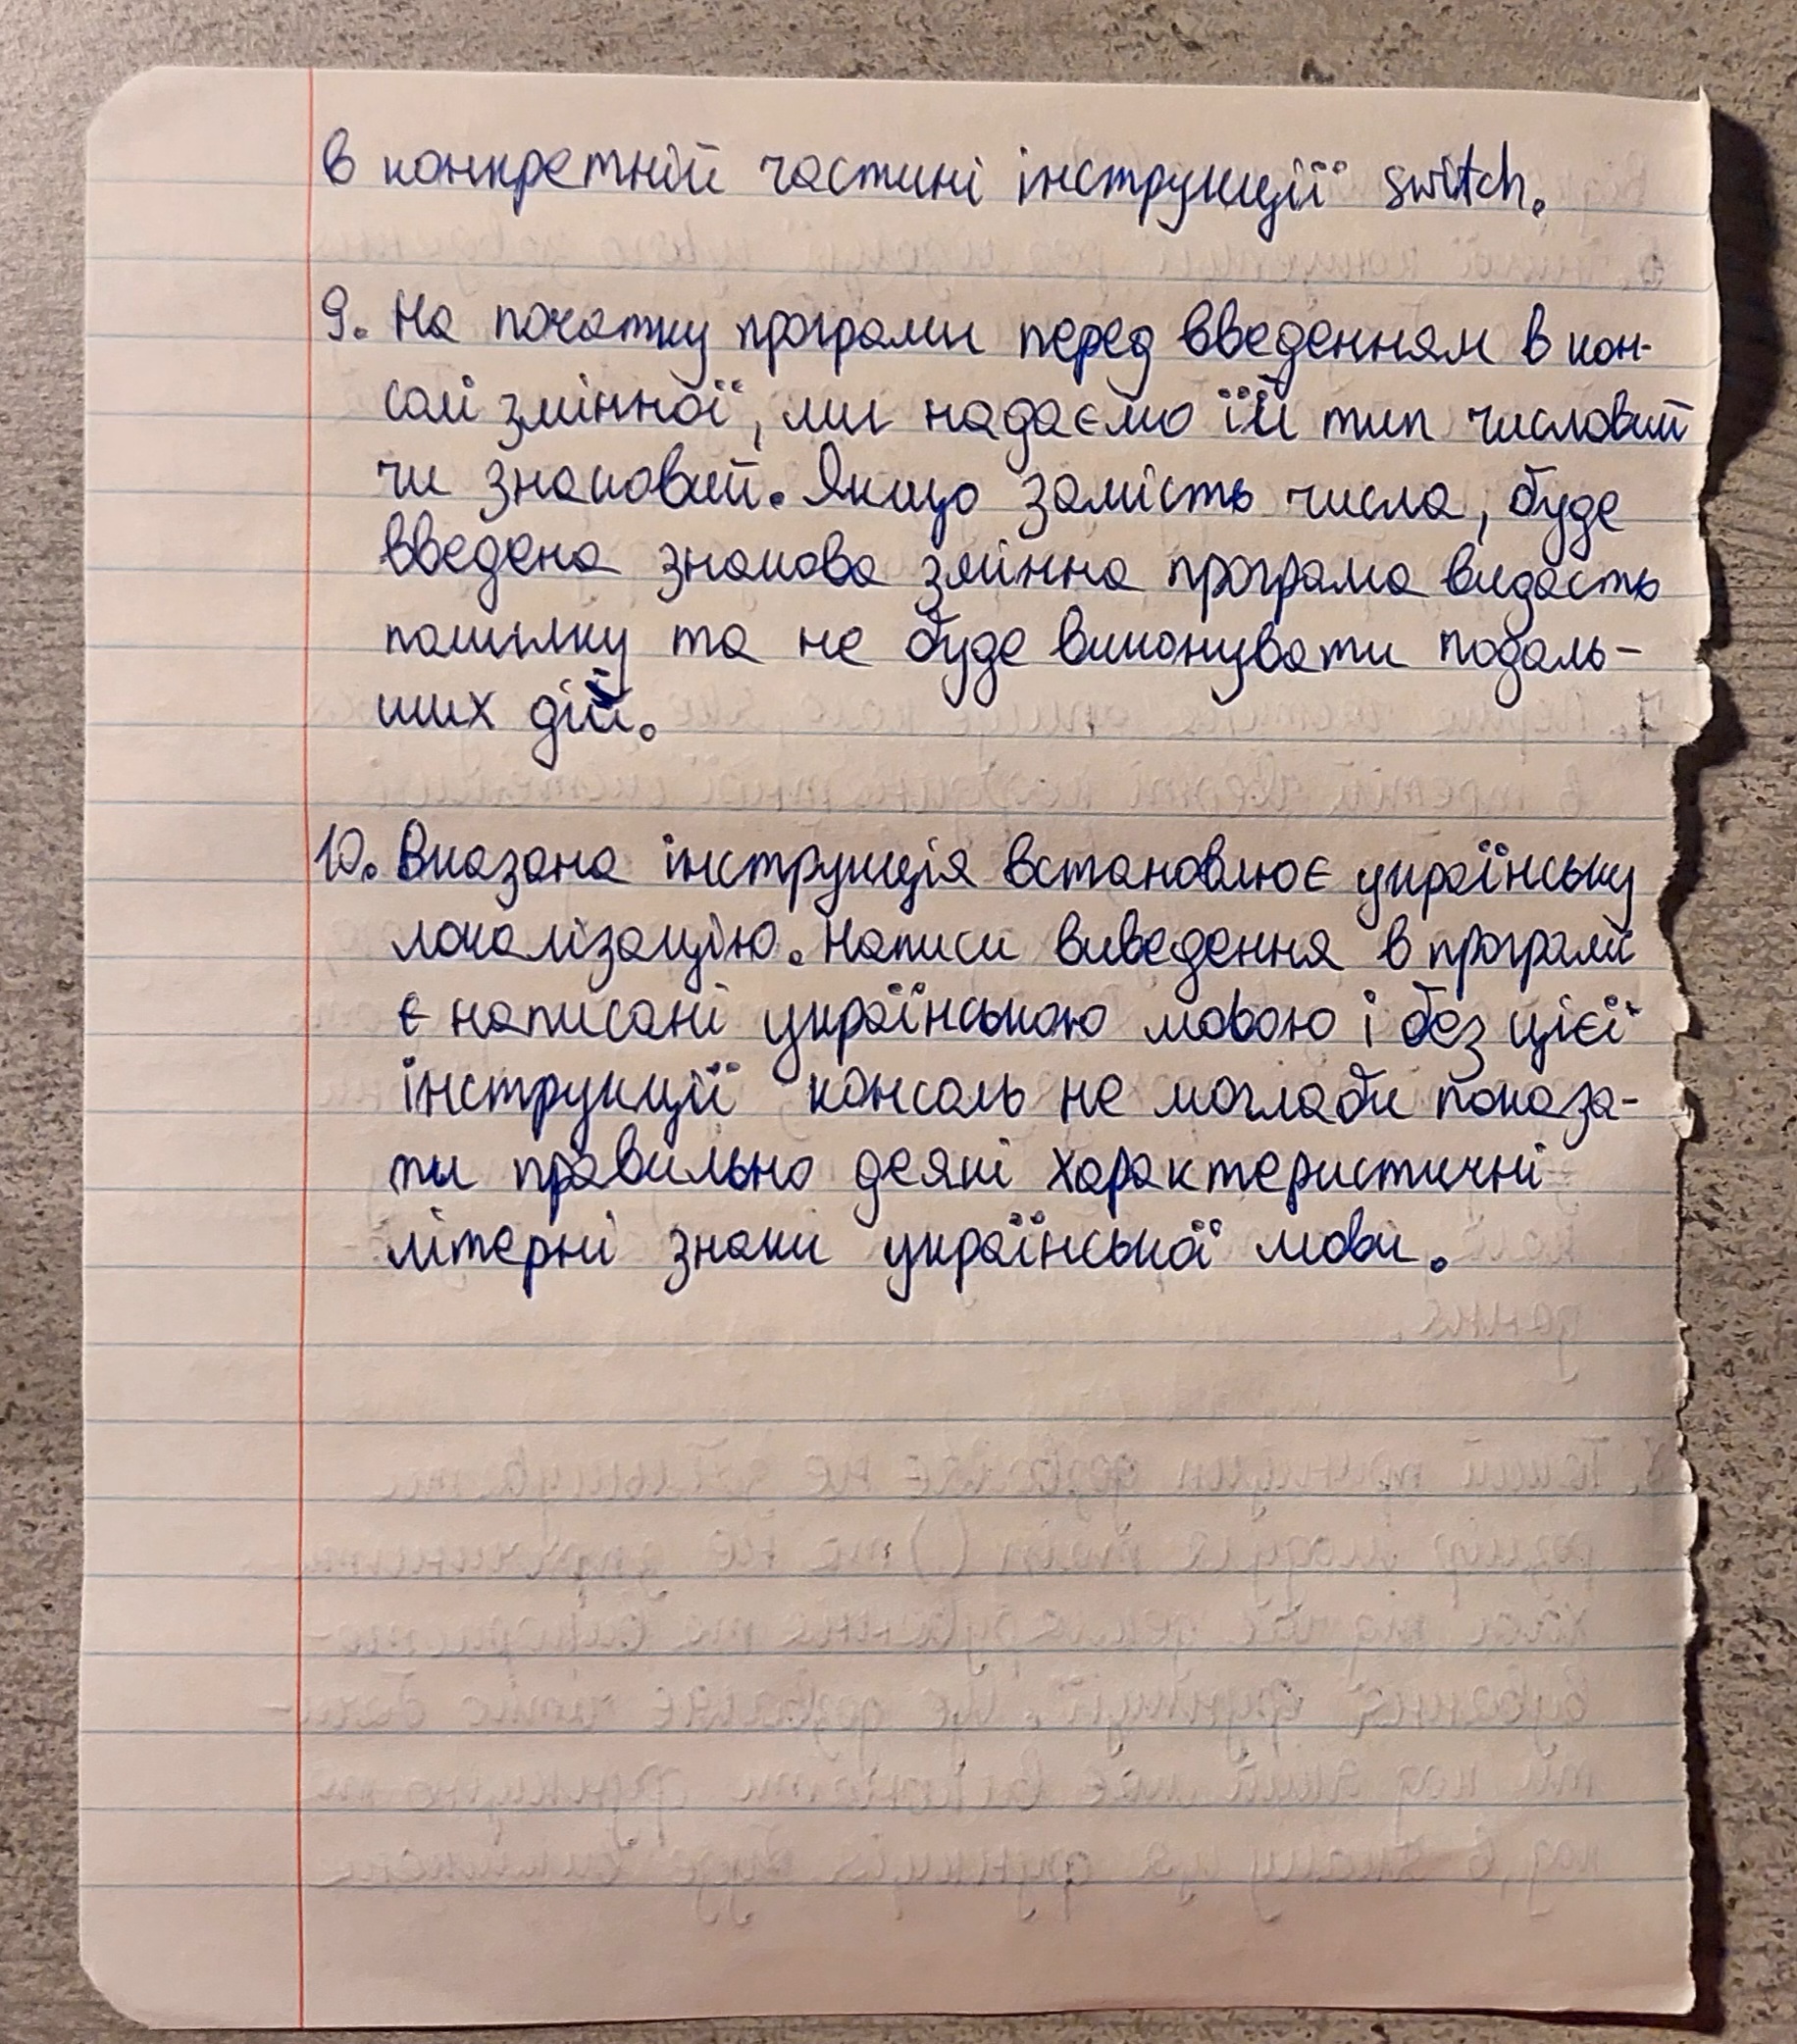 в конкретній частині інструкції switch.
9. На початку програми перед введенням в кон-
солі змінної, ми надаємо їй тип числовий
чи знаковий. Якщо замість числа, буде
введена знакова змінна програма видасть
помилку та не буде виконувати подаль-
ших дій.
10. Вказана інструкція встановлює українську
локалізацію. Написи виведення в програмі
є написані українською мовою і без цієї
інструкції консоль не моглаби показа-
ти правильно деякі характеристичні
літерні знаки української мови.